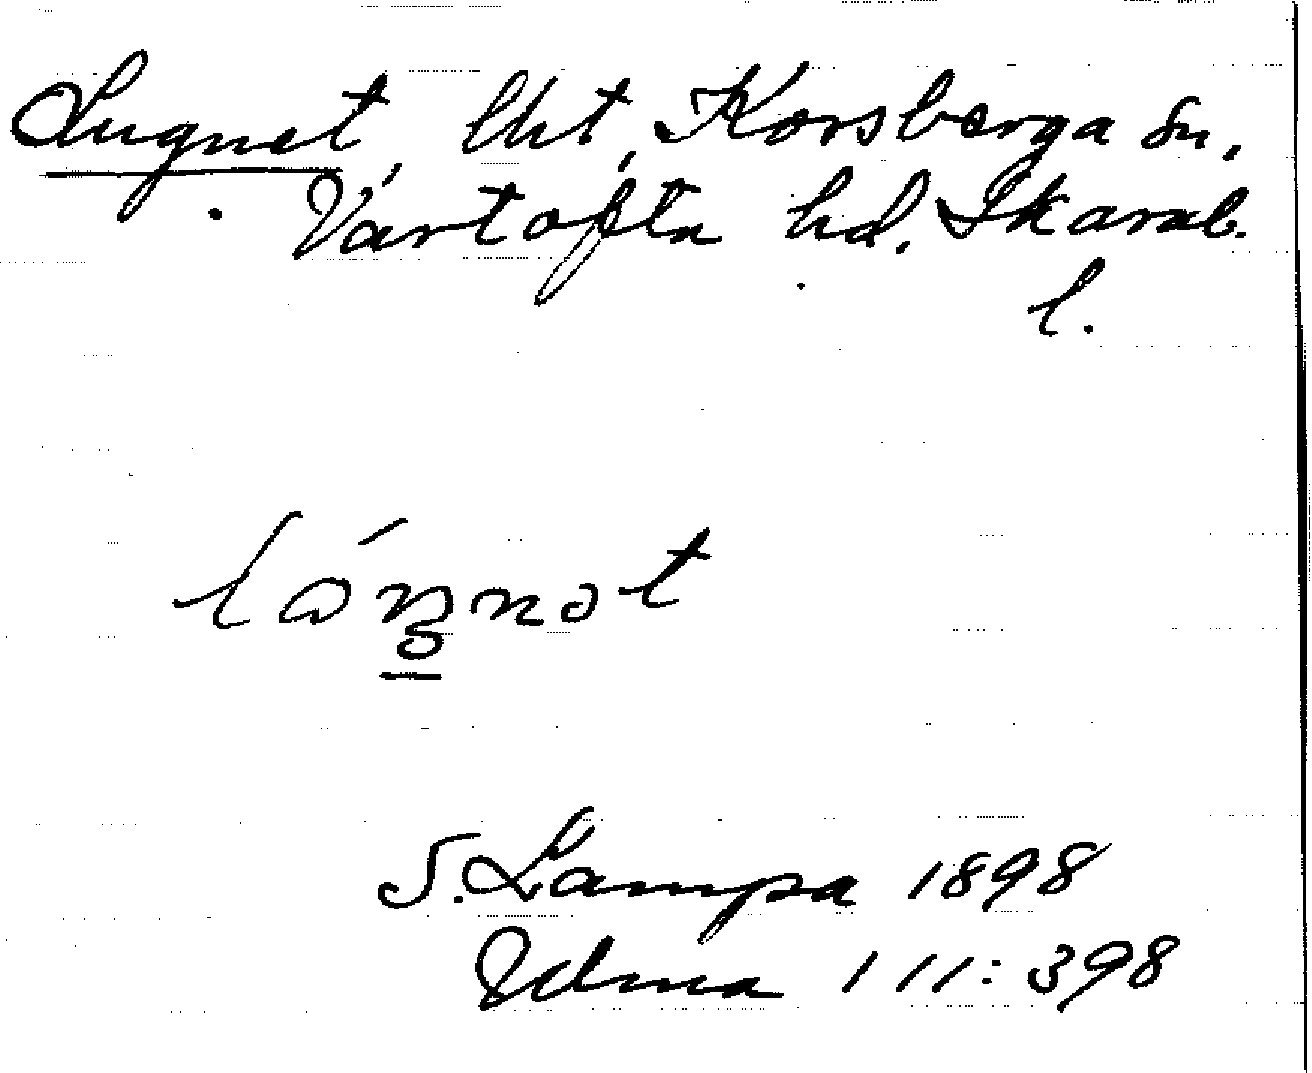 Lugnet, lht, Korsberga sn,
Vartofta hd. Skarab.
l.
S. Lampa 1898
Udma 111:398